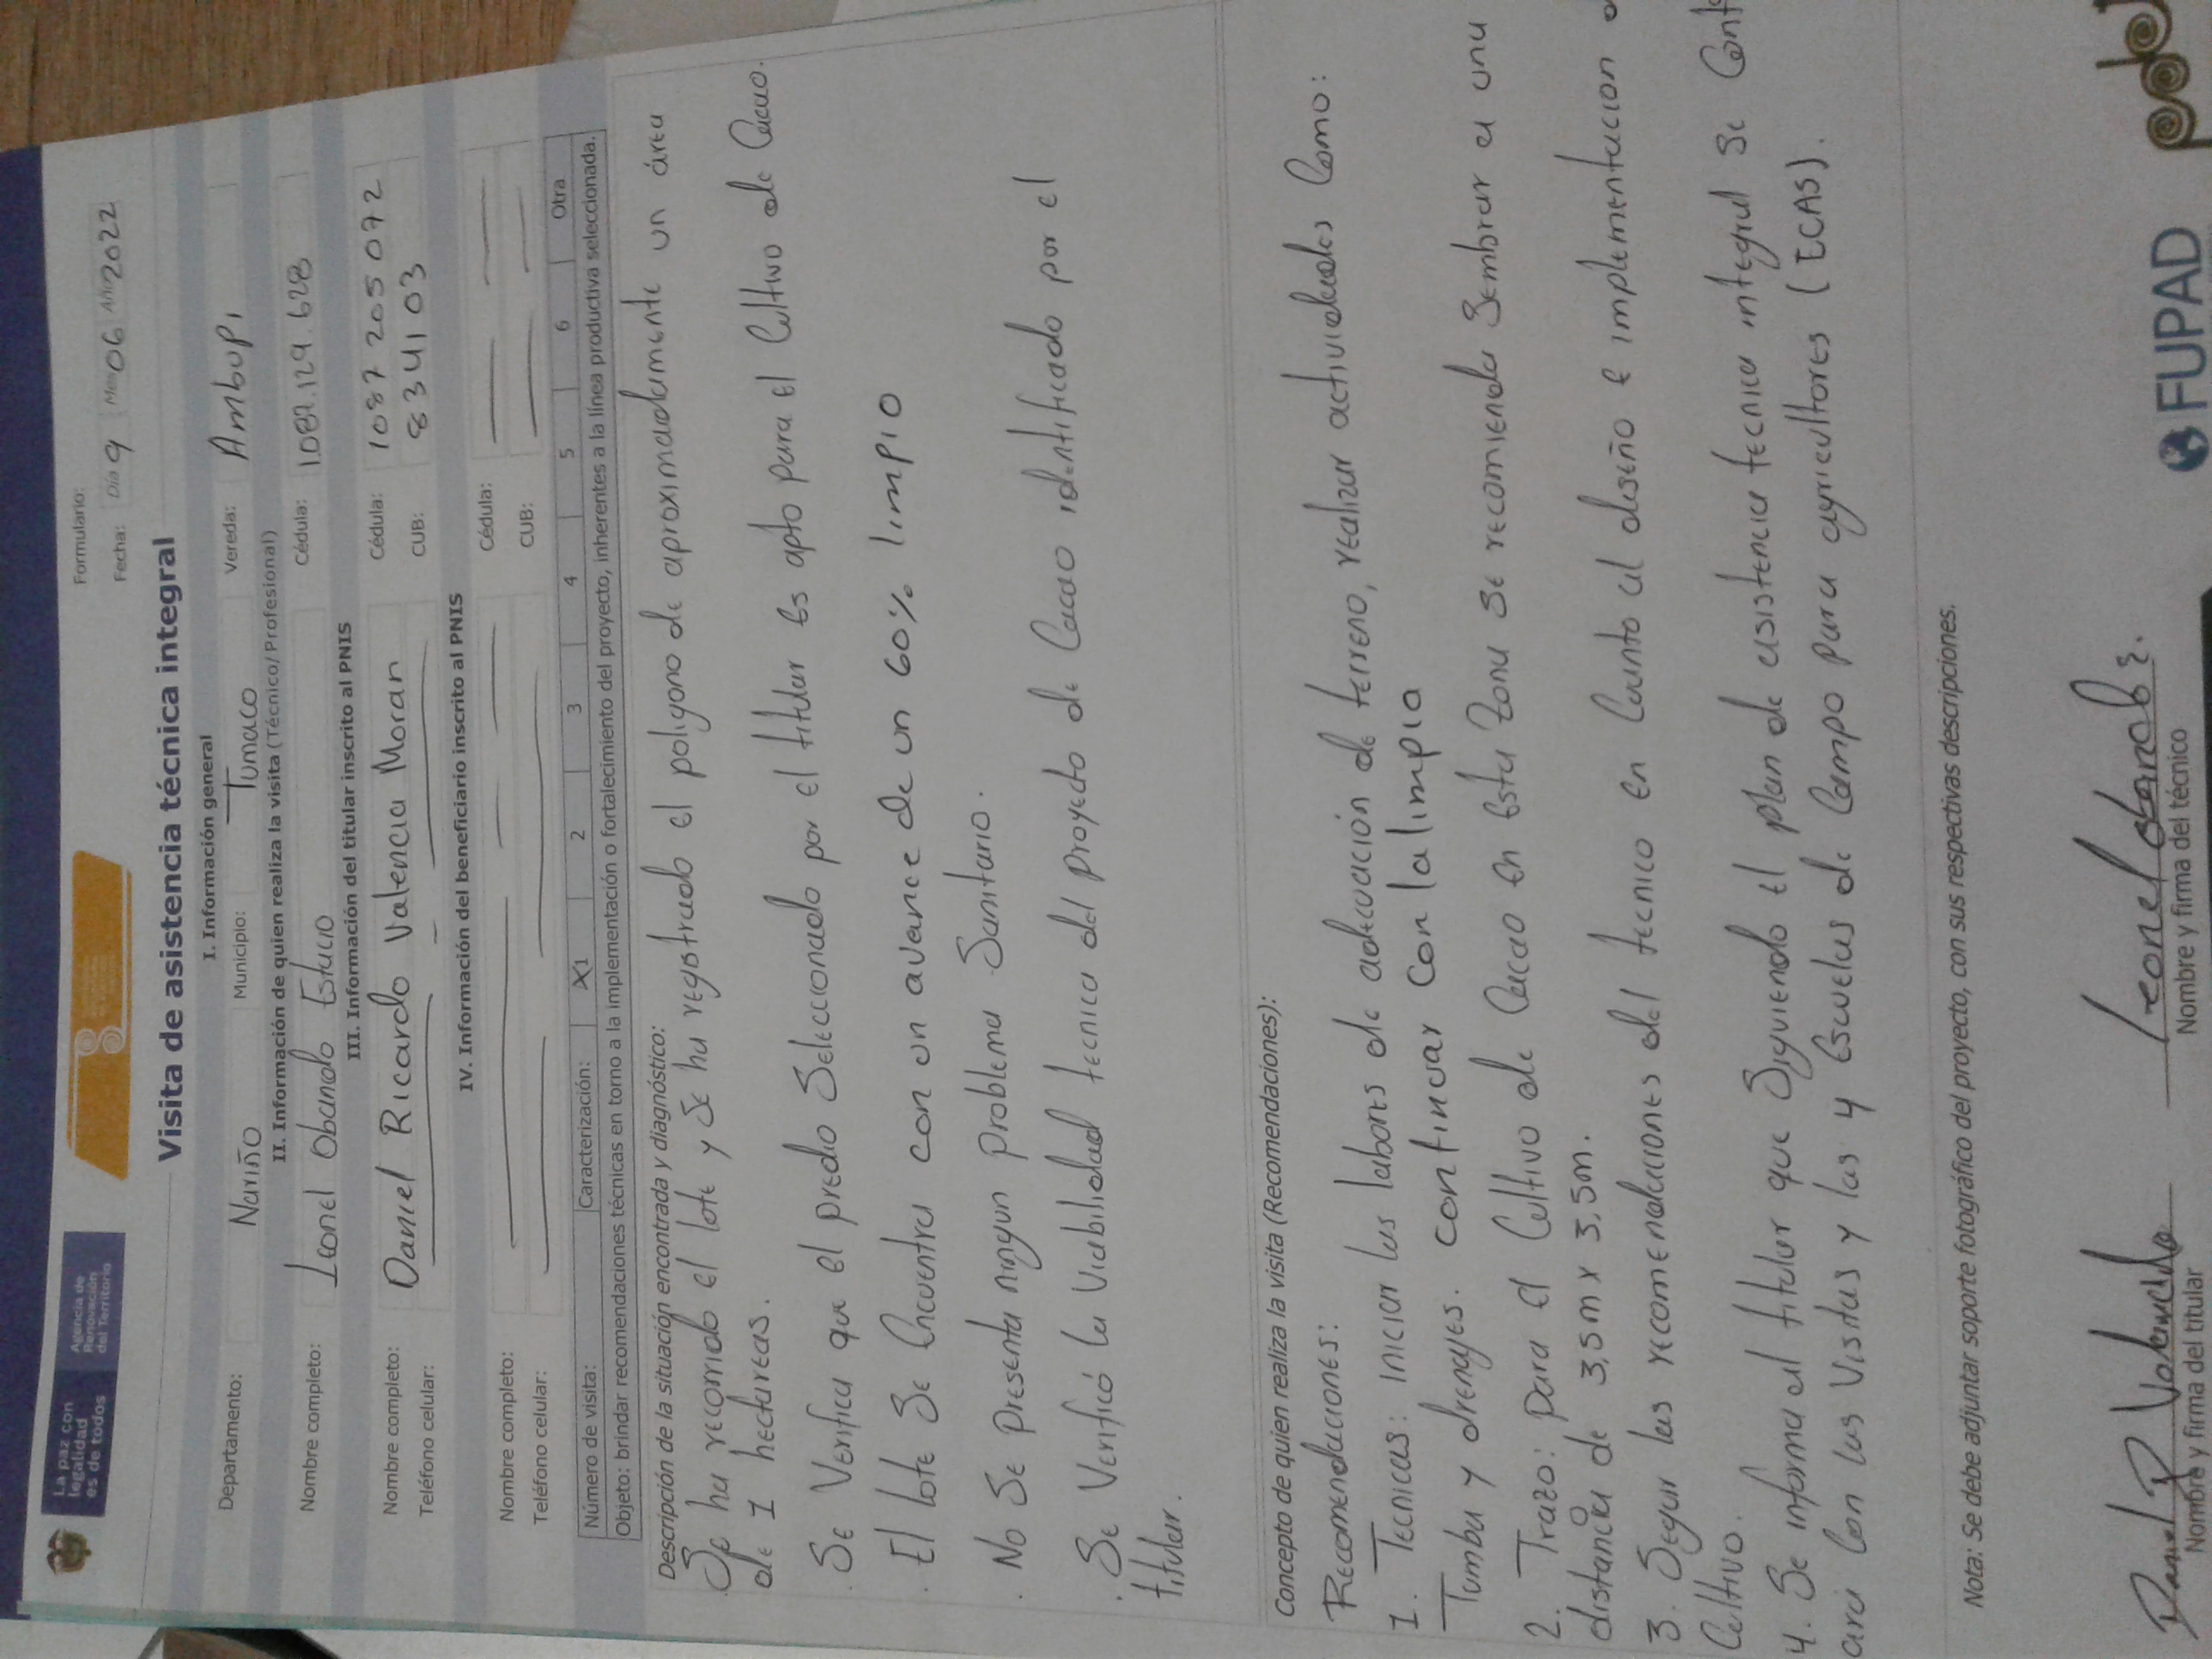 La paz con
legalidad
es de todos
Agencia de
Renovación
del Territorio
Formulario:
Fecha: Día 9 Mes 06 Año 2022
Visita de asistencia técnica integral
I. Información general
Departamento: Nariño Municipio: Tumaco Vereda: Ambupi
II. Información de quien realiza la visita (Técnico/ Profesional)
Nombre completo: Leonel Obando Estacio Cédula: 1.087.129.628
III. Información del titular inscrito al PNIS
Nombre completo: Daniel Ricardo Valencia Moran Cédula: 1087205072
Teléfono celular: CUB: 834103
IV. Información del beneficiario inscrito al PNIS
Nombre completo: Cédula:
Teléfono celular: CUB:
Número de visita: Caracterización: X1 2 3 4 5 6 Otra
Objeto: brindar recomendaciones técnicas en torno a la implementación o fortalecimiento del proyecto, inherentes a la línea productiva seleccionada.
Descripción de la situación encontrada y diagnóstico:
. Se ha recorrido el lote y se ha registrado el poligono de aproximadamente un área
de 1 hectareas.
. Se Verifica que el predio Seleccionado por el titular es apto para el Cultivo de Cacao.
. El lote Se Encuentra con un avance de un 60% limpio
. No Se Presenta ningun problema Sanitario.
. Se Verificó la Viabilidad tecnica del proyecto de Cacao identificado por el
titular.
Concepto de quien realiza la visita (Recomendaciones):
Recomendaciones:
1. Tecnicas: iniciar las labores de adecuación de terreno, realizar actividades Como:
Tumba y drenajes. continuar con la limpia
2. Trazo: para el Cultivo de Cacao en esta Zona se recomienda Sembrar a una
distancia de 3,5 m x 3,5m.
3. Seguir las recomendaciones del tecnico en Cuanto al diseño e implementacion
Cultivo.
4. Se informa al titular que Siguiendo el plan de asistencia tecnica integral Se
ara Con las Visitas y las 4 Escuelas de Campo para agricultores (ECAS).
Nota: Se debe adjuntar soporte fotográfico del proyecto, con sus respectivas descripciones.
Daniel R Valencia
Leonel Obando E.
Nombre y firma del titular
Nombre y firma del técnico
FUPAD